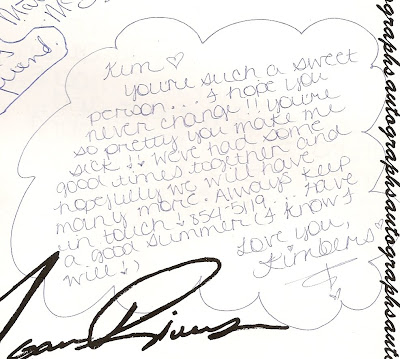 friend.
Kim ♡
you're such a sweet
person... I hope you
never change!! you're
so pretty you make me
sick!! we've had some
good times together and
hopefully we will have
many more. Always keep
in touch 854-5119... have
a good summer (I know I
will!)
Love you,
Kimbers
Joan Rivers
autographsautographsautographsauto